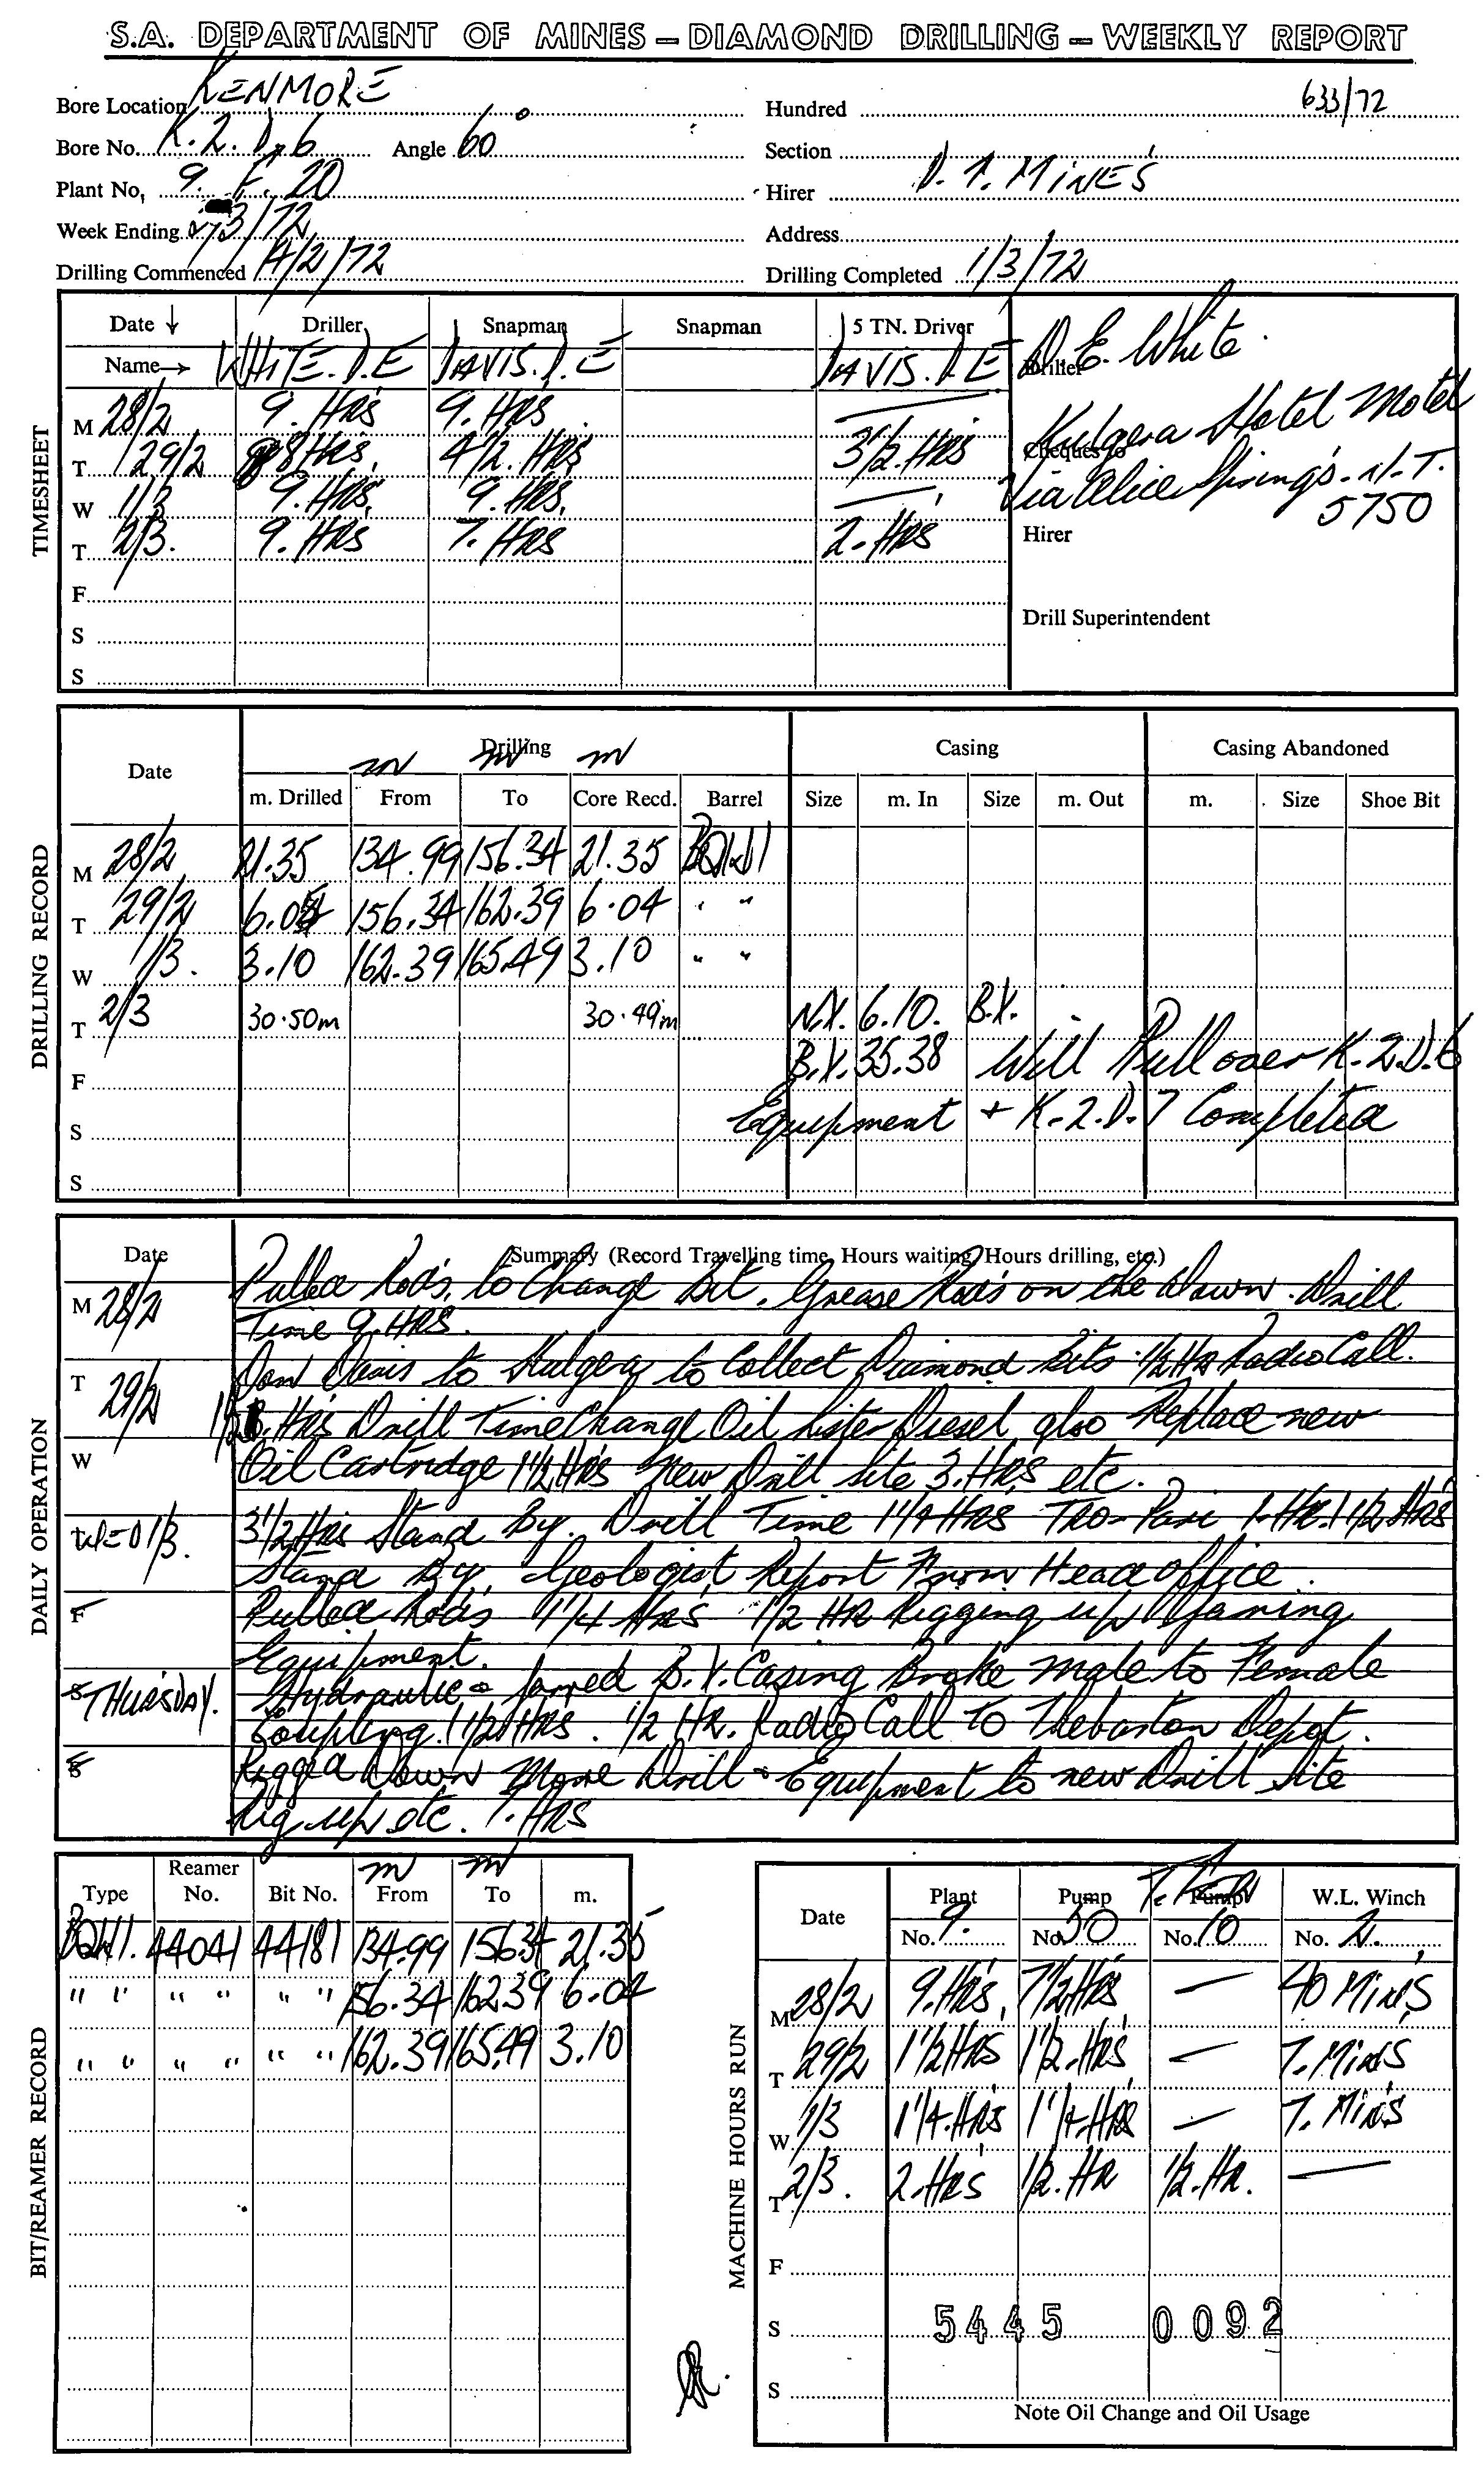 S.A. DEPARTMENT OF MINES – DIAMOND DRILLING – WEEKLY REPORT
Bore Location KENMORE
Hundred 633/72
Bore No. K.2.D.6 Angle 60°
Section
Plant No, 9. F. 20
Hirer D. OF. MINE'S
Week Ending 2/3/72
Address
Drilling Commenced 14/2/72
Drilling Completed 1/3/72
TIMESHEET
Date ↓ Driller Snapman Snapman 5 TN. Driver
Name→ WHITE. D.E DAVIS. D.E DAVIS. D.E
Driller D.E. White.
M 28/2 9. HRS 9. HRS —
T 29/2 8 HRS, 4 1/2. HRS 3 1/2. HRS
Cheques to Kulgera Hotel Motel
Via Alice Spring's. N.T.
5750
W 1/3 9. HRS, 9. HRS. —
T 2/3. 9. HRS 7. HRS 2. HRS
Hirer
F
S
Drill Superintendent
S
DRILLING RECORD
Date Drilling Casing Casing Abandoned
m m m
m. Drilled From To Core Recd. Barrel Size m. In Size m. Out m. Size Shoe Bit
M 28/2 21.35 134.99 156.34 21.35 BQWl
T 29/2 6.04 156.34 162.39 6.04 " "
W 1/3. 3.10 162.39 165.49 3.10 " "
T 2/3 30.50m 30.49m N.X. 6.10. B.X.
F B.X. 35.38 Will Pull over K.2.D.6
S Equipment + K.2.D.7 Completed
S
DAILY OPERATION
Date Summary (Record Travelling time, Hours waiting, Hours drilling, etc.)
M 28/2 Pulled Rod's, to Change Bit. Grease Rod's on the down. Drill
Time 9. HRS.
T 29/2 Don Davis to Kulgera to Collect Diamond Bits. 1/2 HR Radio Call.
1 1/2 HRS Drill Time Change Oil Lister Diesel, also Replace new
W Oil Cartridge 1 1/2 HRS New Drill Site 3. HRS, etc.
1/3. 3 1/2 HRS Stand By. Drill Time 1 1/4 HRS Tro-Pari 1. HR. 1 1/2 HRS
Stand By, Geologist Report From Head office.
F Pulled Rod's 1 1/4 HRS 1/2 HR Rigging up Jarring
Equipment.
S THURSDAY. Hydraulic & Jarred B.X. Casing Broke Male to Female
Coupling. 1 1/2 HRS. 1/2 HR. Radio Call To Thebarton Depot.
S Rigged Down Move Drill & Equipment to new Drill Site
Rig up etc. 7. HRS
BIT/REAMER RECORD
m m
Type Reamer No. Bit No. From To m.
BQWl. 44041 44181 134.99 156.34 21.35
" " " " " " 156.34 162.39 6.04
" " " " " " 162.39 165.49 3.10
MACHINE HOURS RUN
Date Plant Pump Pump W.L. Winch
No. 9. No. 50 No. 10 No. 2.
M 28/2 9. HRS, 7 1/2 HRS — 40 MINS
T 29/2 1 1/2 HRS 1 1/2. HRS — 7. MINS
W 1/3 1 1/4. HRS 1 1/4. HRS — 7. MINS
T 2/3. 2. HRS 1/2. HR 1/2. HR. —
F
S 5445 0092
S
Note Oil Change and Oil Usage